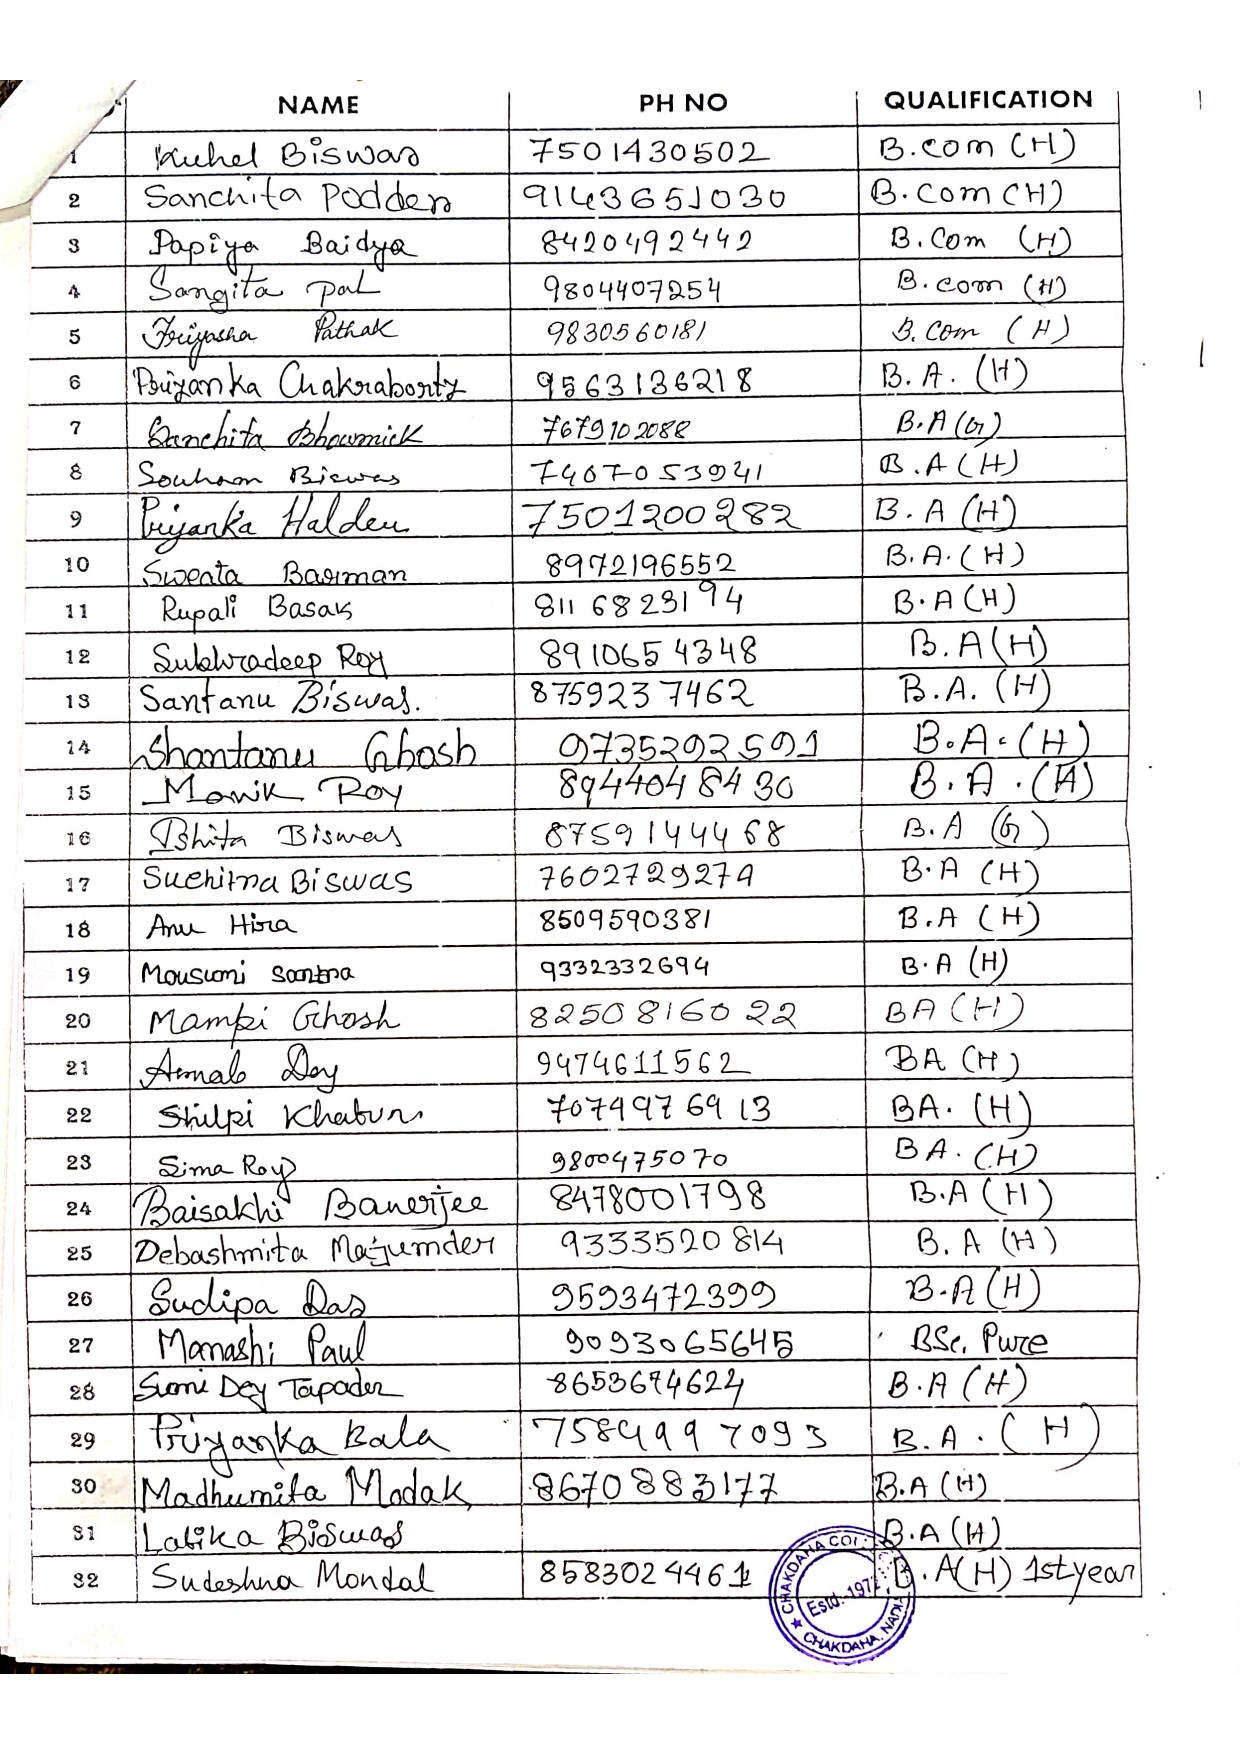 NAME PH NO QUALIFICATION
1 Kuhel Biswas 7501430502 B.com (H)
2 Sanchita Podder 9143651030 B.Com (H)
3 Papiya Baidya 8420492442 B.Com (H)
4 Sangita pal 9804407254 B.com (H)
5 Priyasha Pathak 9830560181 B.Com (H)
6 Priyanka Chakraborty 9563136218 B.A. (H)
7 Sanchita Bhowmick 7679102088 B.A (G)
8 Biswas 7407053941 B.A (H)
9 Priyanka Halder. 7501200282 B.A (H)
10 Sweata Barman 8972196552 B.A. (H)
11 Rupali Basak 8116823194 B.A (H)
12 Subhradeep Roy 8910654348 B.A (H)
13 Santanu Biswas. 8759237462 B.A. (H)
14 Shantanu Ghosh 9735292591 B.A. (H)
15 Manik Roy 8944048430 B.A. (H)
16 Biswas 8759144468 B.A (G)
17 Suchitna Biswas 7602729279 B.A (H)
18 Anu Hira 8509590381 B.A (H)
19 Mousumi Santra 9332332694 B.A (H)
20 Mampi Ghosh 8250816022 BA (H)
21 Arnab Dey 9474611562 BA (H)
22 Shilpi Khatun 70749976913 BA. (H)
23 Sima Roy 9800475070 BA. (H)
24 Baisakhi Banerjee 8478001798 B.A (H)
25 Debashmita Majumder 9333520814 B.A (H)
26 Sudipa Das 9593472399 B.A (H)
27 Manashi Paul 9093065645 BSc. Pure
28 Sumi Dey Tapader 8653674624 B.A (H)
29 Priyanka Bala 7584997093 B.A. (H)
30 Madhumita Modak 8670883177 B.A (H)
31 Latika Biswas B.A (H)
32 Sudeshna Mondal 8583024461 B.A(H) 1st year
CHAKDAHA COL
Estd.-1972
CHAKDAHA, NADIA